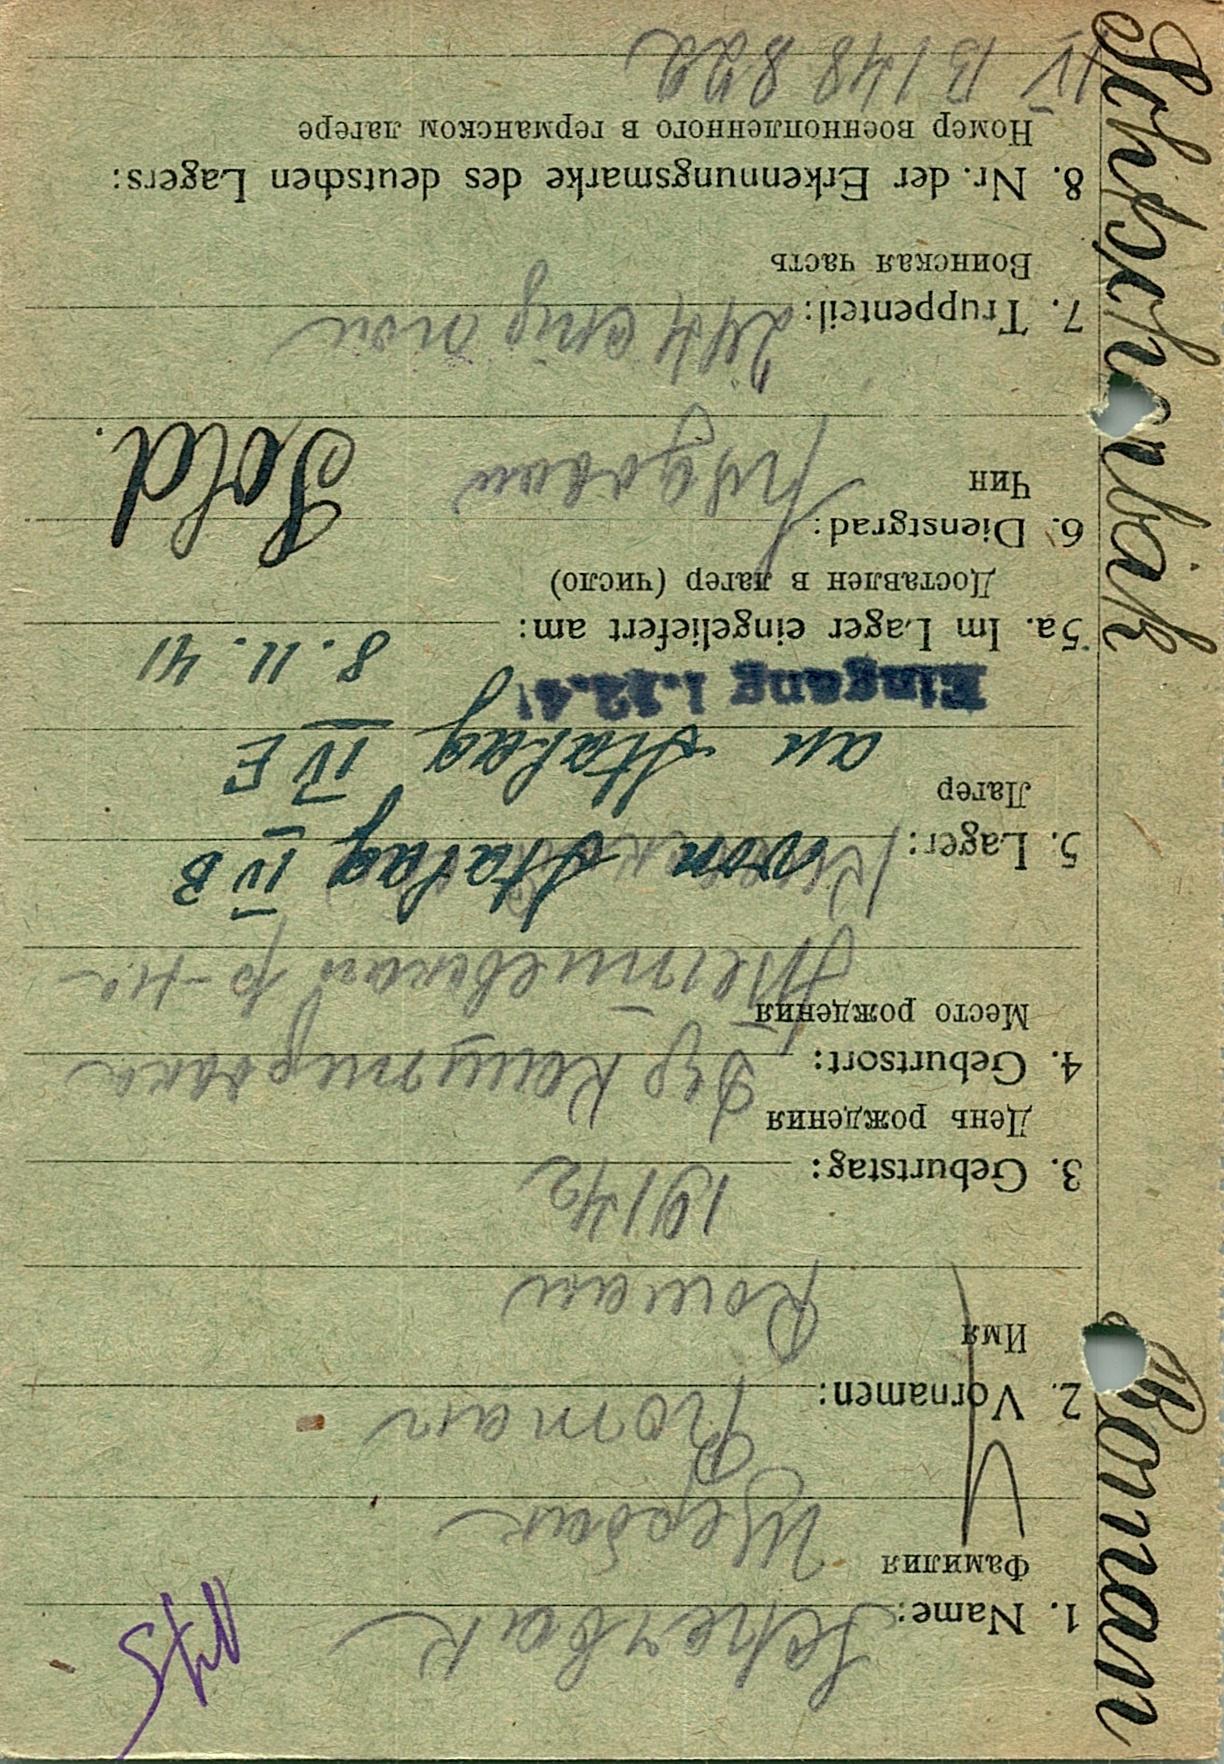 Schtscherbak Roman
Still
1. Name: Scherbak
Фамилия Щербак
Roman
2. Vornamen:
Имя Роман
1914 г
3. Geburtstag:
День рождения
4. Geburtsort: Дер
Место рождения
р-на
5. Lager: von Stalag IV B
Лагер
an Stalag IV E
Eingang 1.12.41
5a. Im Lager eingeliefert am: 8.11.41
Доставлен в лагер (число)
6. Dienstgrad: Sold.
Чин рядовой
7. Truppenteil: 244 стр полк
Воинская часть
8. Nr. der Erkennungsmarke des deutschen Lagers:
Номер военнопленного в германском лагере
IV B 148 822